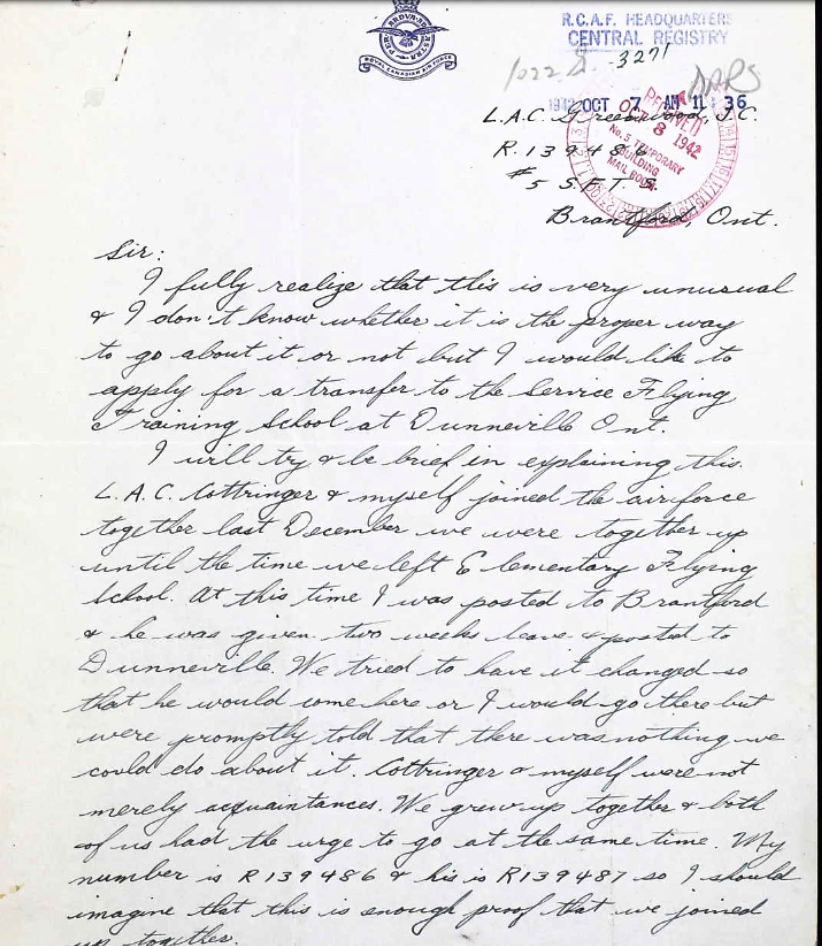 PER ARDUA AD ASTRA
ROYAL CANADIAN AIR FORCE
R.C.A.F. HEADQUARTERS
CENTRAL REGISTRY
1022 -3271
1942 OCT 7 AM 11 36
RECEIVED
OCT 8 1942
No. 5 TEMPORARY
BUILDING
MAIL ROOM
L.A.C. Greenwood, J.C.
R.139486
#5 S.F.T.S.
Brantford, Ont.
Sir:
I fully realize that this is very unusual
& I don't know whether it is the proper way
to go about it or not but I would like to
apply for a transfer to the Service Flying
Training School at Dunneville Ont.
I will try & be brief in explaining this.
L.A.C. Cottringer & myself joined the airforce
together last December we were together up
until the time we left Elementary Flying
School. At this time I was posted to Brantford
& he was given two weeks leave & posted to
Dunneville. We tried to have it changed so
that he would come here or I would go there but
were promptly told that there was nothing we
could do about it. Cottringer & myself were not
merely acquaintances. We grew up together & both
of us had the urge to go at the same time. My
number is R139486 & his is R139487 so I should
imagine that this is enough proof that we joined
up together.